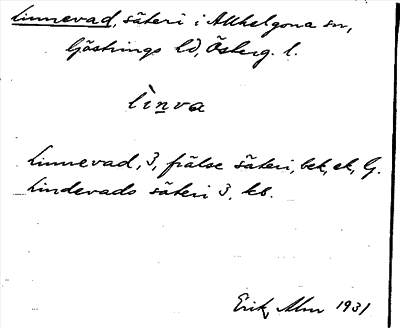 Linnevad, säteri i Allhelgona sn,
Göstrings hd, Österg. l.
lìnva
Linnevad, 3, frälse säteri, bek, ek, G.
Lindevads säteri 3, kb.
Erik Alm 1931